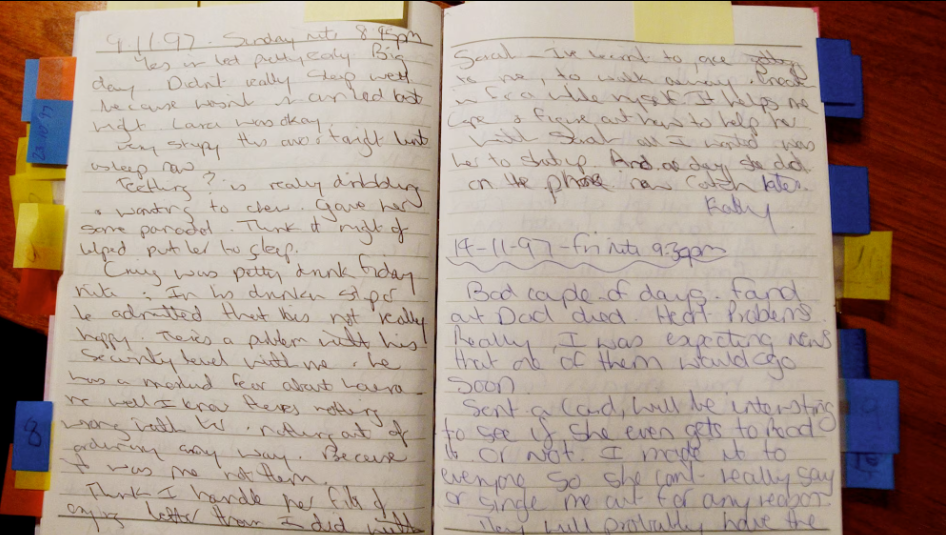 9-11-97. Sunday nite 8.45pm
Yes in bed pretty early Big
day Didn't really sleep well
because wasn't last
night Laura was okay
very sleepy this avo & tonight but
asleep now
Teething? is really dribbling
& wanting to chew. Gave her
some panadol. Think it might of
helped put her to sleep.
Craig was pretty drunk Friday
nite; In his drunken
he admitted that he's not really
happy. There's a problem with his
security level with me. he
has a marked fear about Laura
me well I know theres nothing
wrong with . nothing out of
ordinary any way. Because
it was me not them.
Think I handle her fits of
crying better than I did with
Sarah - I've learnt to pace
to me, to walk away,
in for a while myself. It helps me
cope & figure out how to help her
With Sarah all I wanted was
her to shutup. And one day she did.
on the phone now Catch later.
Kathy
14-11-97 - fri nite 9:30pm
Bad couple of days. Found
out Dad died. Heart Problems.
Really, I was expecting news
that one of them would go
soon.
Sent a Card, Will be interesting
to see if she even gets to read
it or not. I made it to
everyone so she cant really say
or single me out for any reason
They will probably have the
8
9